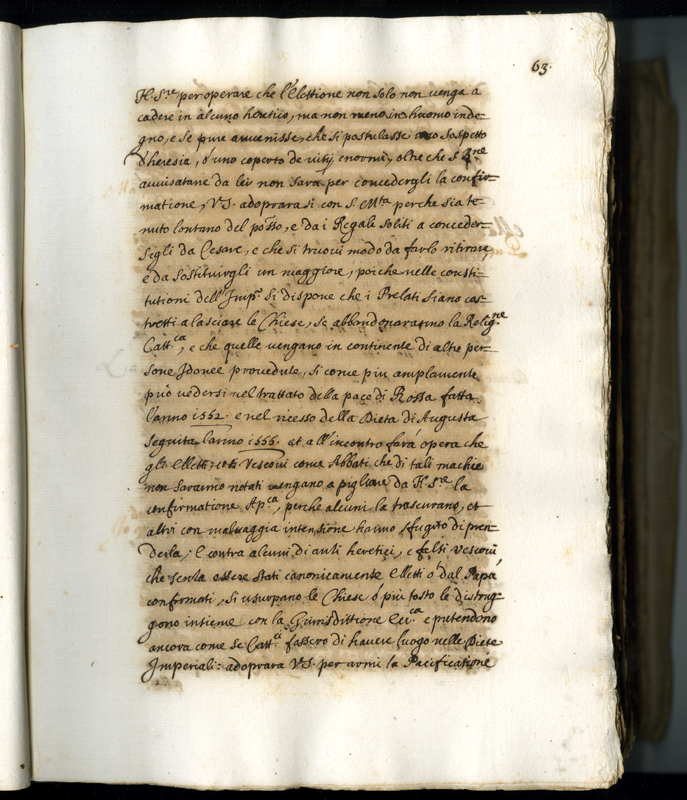 63.
N. S.re per operare che l'Elettione non solo non venga a
cadere in alcuno heretico, ma non meno in huomo inde-
gno, e se pure avvenisse, che si postulasse uno sospetto
d'heresia, ó uno coperto de vitij enormi, oltre che S. S.ne
avvisatane da lei non sarà per concedergli la confir-
matione, V.S. adoprarasi con S. M.ta perche sia te-
nuto lontano del posto, e da i Regali soliti a conceder-
segli da Cesare, e che si truovi modo da farlo ritirare,
e da sostituirgli un maggiore, poiche nelle consti-
tutioni dell'Imp.o si dispone che i Prelati siano cos-
tretti a lasciare le Chiese, se abbandonaranno la Relig.ne
Catt.ca, e che quelle vengano in continente di altre per-
sone Idonee provedute, si come piu amplamente
può vedersi nel trattato della pace di Rossa fatta
l'anno 1552. e nel ricesso della Dieta di Augusta
seguita l'anno 1555. et all'incontro farà opera che
gli eletti, così Vescovi come Abbati, che di tali machie
non saranno notati vengano a pigliare da N. S.re la
confirmatione Ap.ca, perche alcuni la trascurano, et
altri con malvaggia intensione hanno sfugito di pren-
derla; E contra alcuni di anti heretici, e falsi vescovi
che senza essere stati canonicamente eletti ó dal Papa
confirmati, si usurpano le Chiese ó più tosto le distrug-
gono insieme con la Giurisdittione Ecc.ca e pretendono
ancora come se Catt.ci fossero di havere luogo nelle Diete
Imperiali: adoprara V.S. per armi la Pacificatione